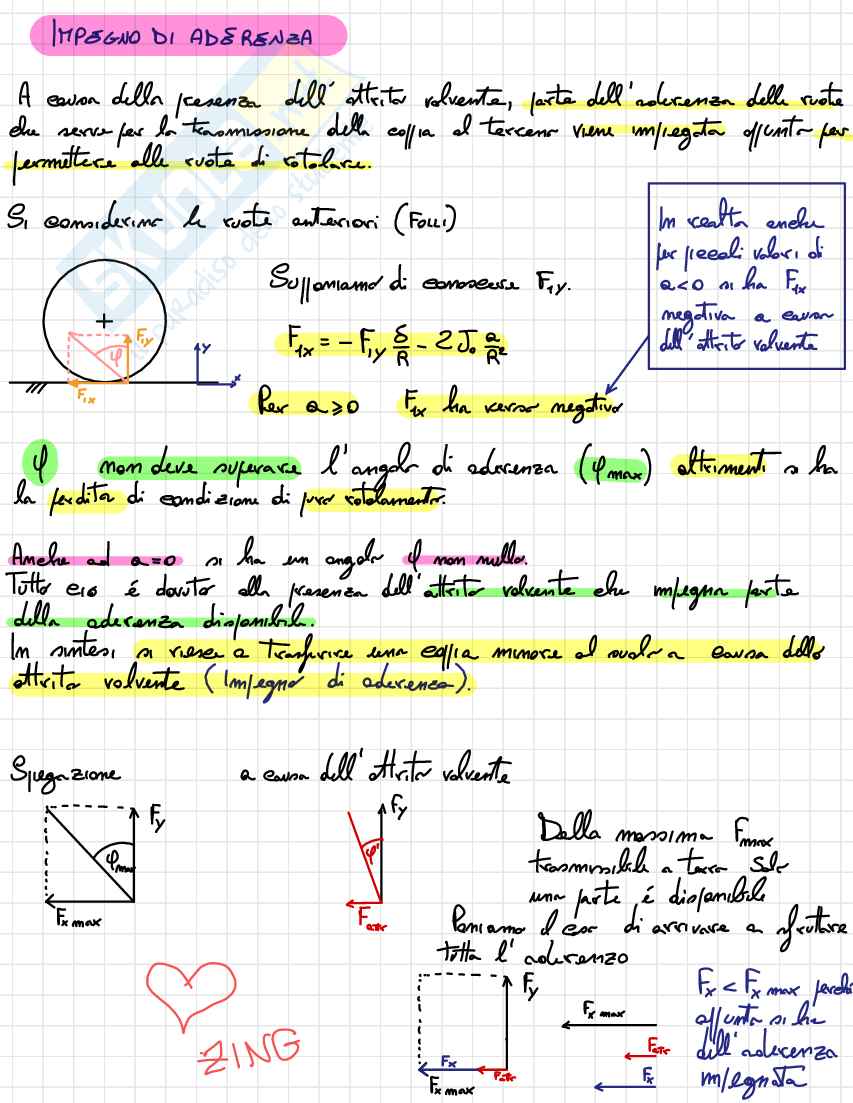 IMPEGNO DI ADERENZA
A causa della presenza dell'attrito volvente, parte dell'aderenza delle ruote
che serve per la trasmissione della coppia al terreno viene impiegata appunto per
permettere alle ruote di rotolare.
Si considerino le ruote anteriori (FOLLI)
In realtà anche
per piccoli valori di
a<0 si ha F1x
negativa a causa
dell'attrito volvente
Supponiamo di conoscere F1y.
F1x = - F1y δ/R - 2 J₀ a/R²
Per a ⩾ 0 F1x ha verso negativo
φ F1y F1x y x
φ non deve superare l'angolo di aderenza (φmax) altrimenti si ha
la perdita di condizione di puro rotolamento.
Anche ad a=0 si ha un angolo φ non nullo.
Tutto ciò é dovuto alla presenza dell'attrito volvente che impegna parte
della aderenza disponibile.
In sintesi si riesce a trasferire una coppia minore al suolo a causa dello
attrito volvente (Impegno di aderenza).
Spiegazione a causa dell'attrito volvente
Fy φmax Fx max
Fy φ' Fattr
Della massima Fmax
trasmissibile a terra solo
una parte é disponibile
Poniamo il caso di arrivare a sfruttare
tutta l'aderenza
Fy Fx Fattr Fx max
Fx max
Fattr
Fx
Fx < Fx max perché
appunto si ha
dell'aderenza
impegnata
ZING